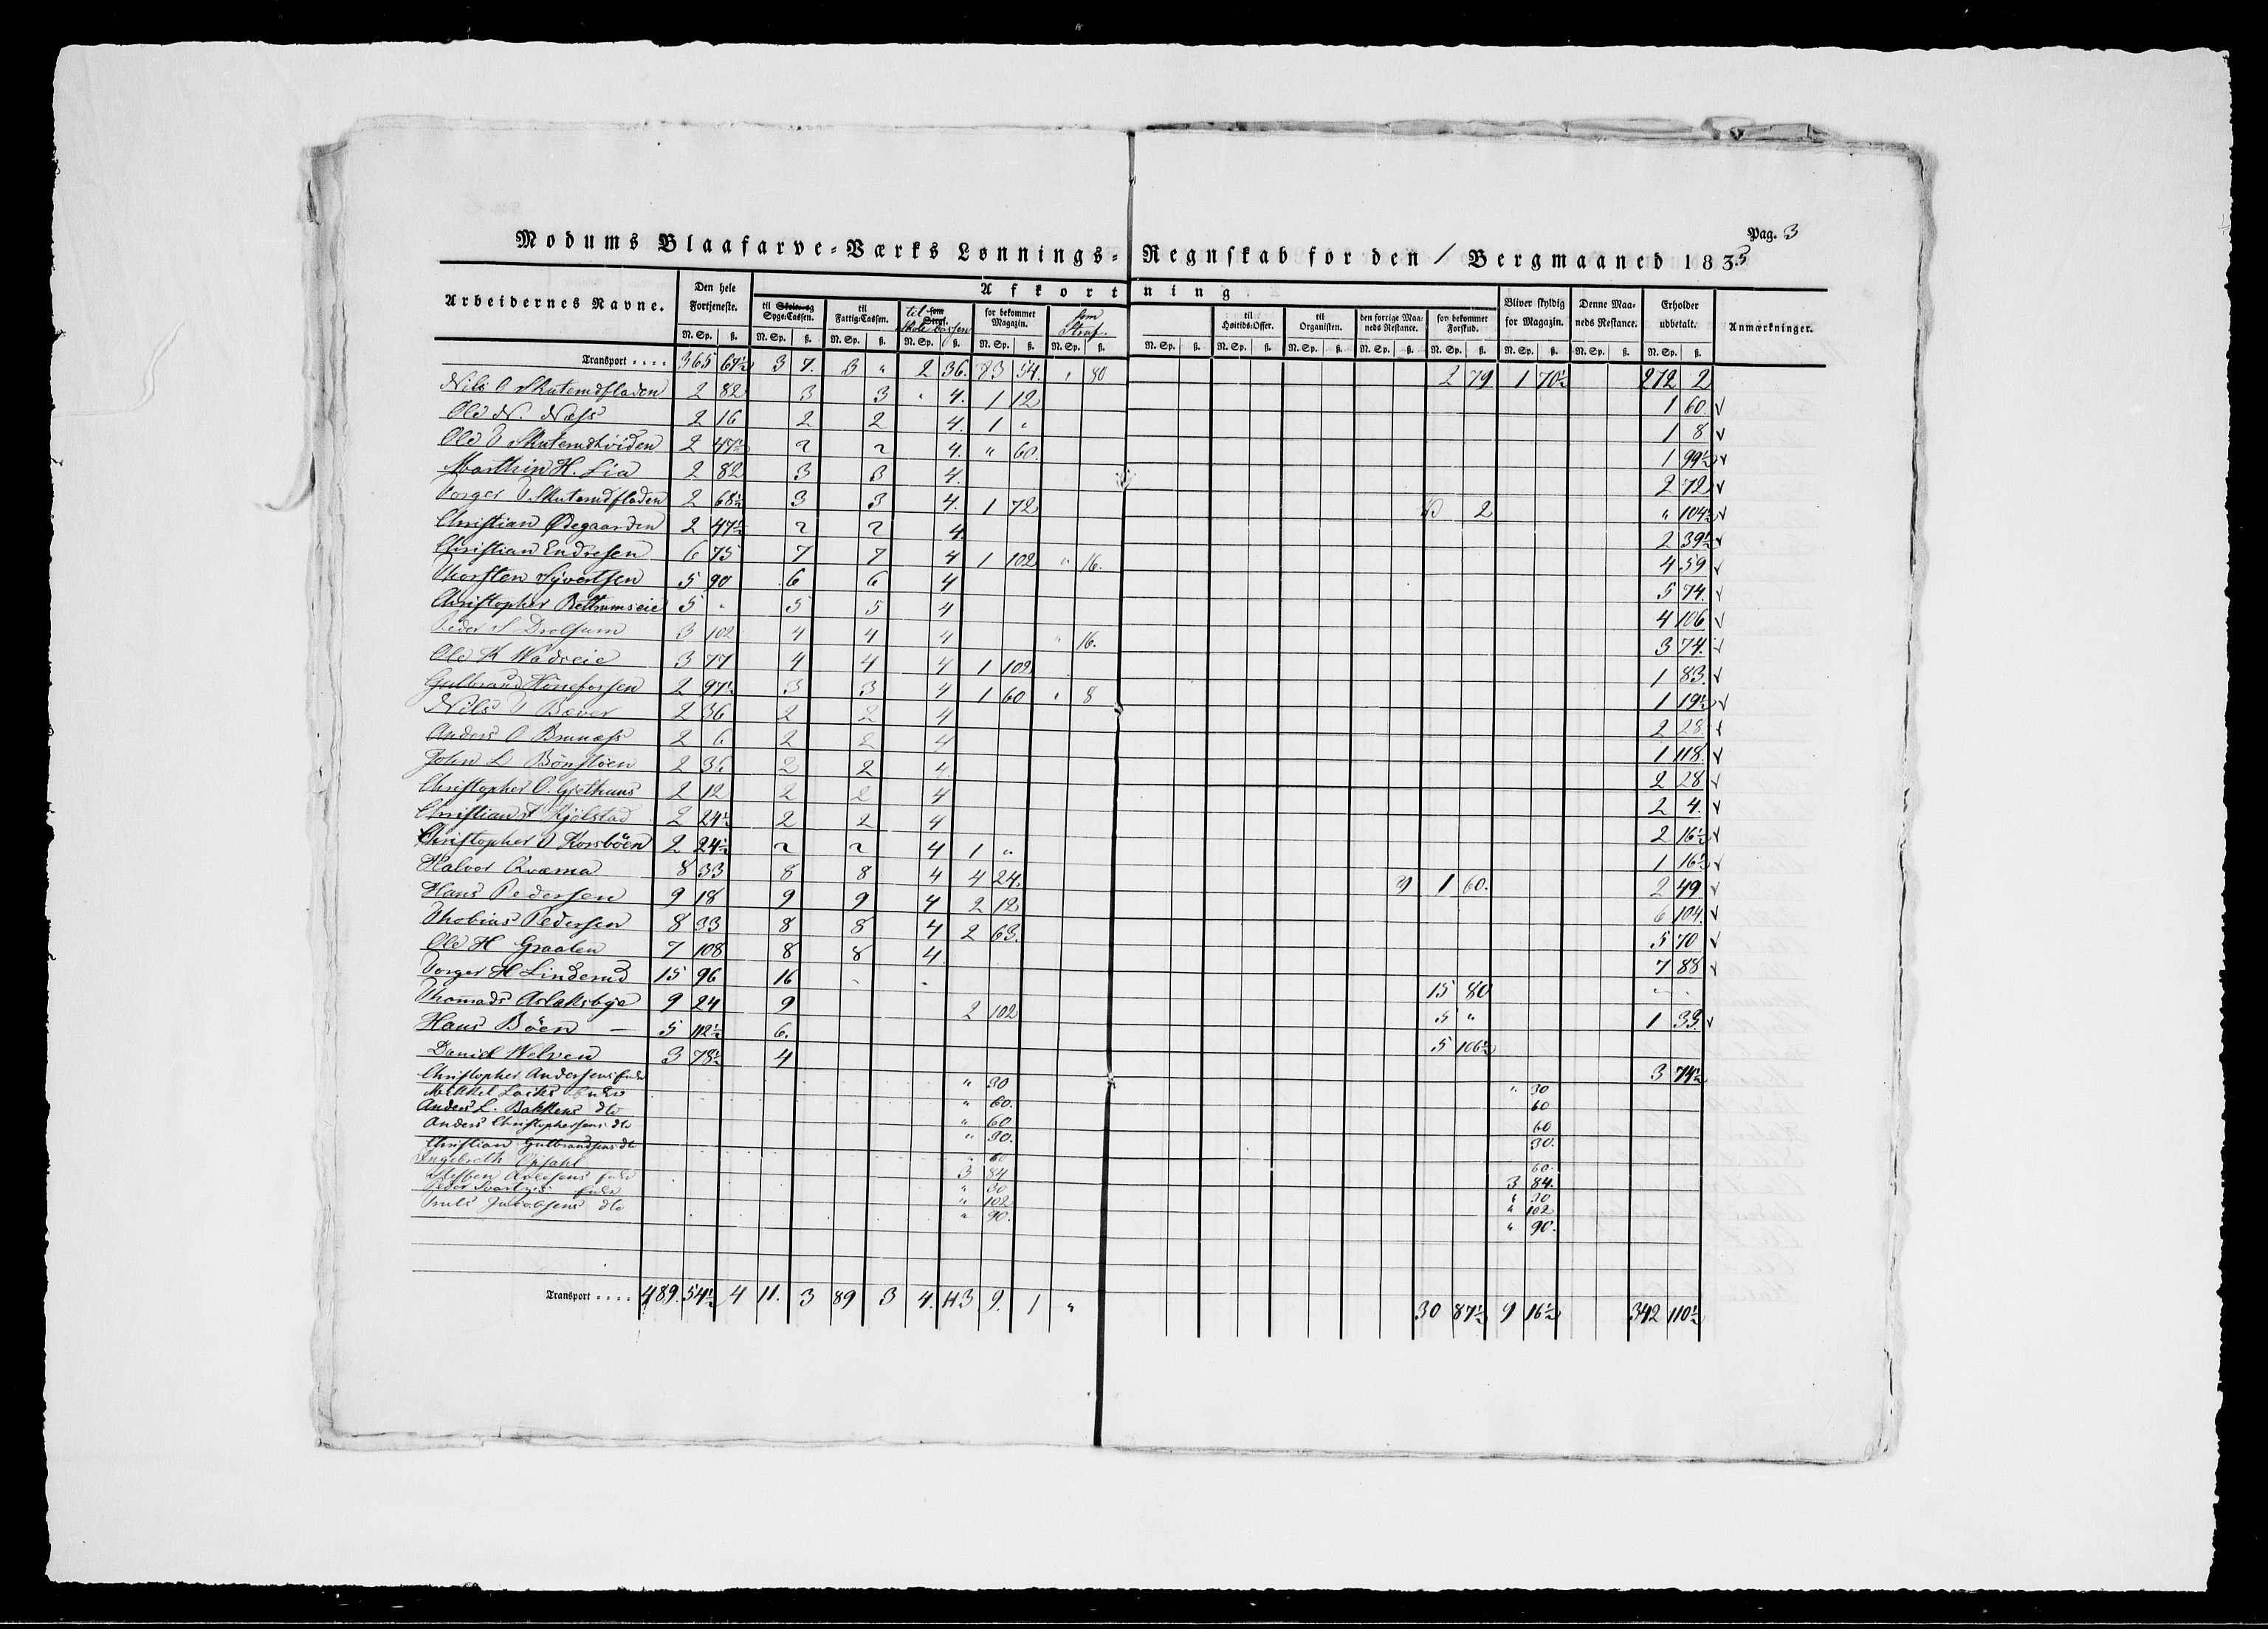 Pag. 3
Modums Blaafarve-Værks Lønnings-Regnskab for den 1 Bergmaaned 1835
Arbeidernes Navne. Den hele Fortjeneste. Afkortning Bliver skyldig for Magazin. Denne Maaneds Restance. Erholder udbetalt. Anmærkninger.
til Skole- og Syge-Cassen. til Fattig-Cassen. til som Straf. Skole-Cassen for bekommet Magazin. som Straf. til Høitids-Offer. til Organisten. den forrige Maaneds Restance. for bekommet Forskud.
N. Sp. ß. N. Sp. ß. N. Sp. ß. N. Sp. ß. N. Sp. ß. N. Sp. ß. N. Sp. ß. N. Sp. ß. N. Sp. ß. N. Sp. ß. N. Sp. ß. N. Sp. ß. N. Sp. ß. N. Sp. ß.
Transport .... 365 67½ 3 7. 3 " 2 36. 83 54. " 80 2 79 1 70½ 272 2
Nils O Skuterudfladen 2 82 3 3 " 4. 1 12 1 60. v
Ole N. Næss 2 16 2 2 4. 1 " 1 8 v
Ole O Skuterudhviden 2 47½ 2 2 4. " 60. 1 99½ v
Marthin H. Lia 2 82 3 3 4. 2 72 v
Torger O. Skuterudfladen 2 68½ 3 3 4. 1 72 2 " 104½ v
Christian Ødegaarden 2 47½ 2 2 4. 2 39½ v
Christian Endresen 6 75 7 7 4 1 102 " 16. 4 59 v
Thorsten Syvertsen 5 90 6 6 4 5 74. v
Christopher Bettrumseie 5 " 5 5 4 4 106 v
Peder S Drolsum 3 102 4 4 4 " 16. 3 74. v
Ole K Wadseie 3 77 4 4 4 1 102 1 83. v
Gulbrand Hönefossen 2 97½ 3 3 4 1 60 " 8 1 19½ v
Nils T Bæver 2 36 2 2 4 2 28. v
Anders O Brunæss 2 6 2 2 4 1 118. v
John L Bönsløen 2 36 2 2 4. 2 28 v
Christopher O. Gjethuus 2 12 2 2 4 2 4. v
Christian Kjølstad 2 24½ 2 2 4 2 16½ v
Christopher O Korsböen 2 24½ 2 2 4 1 " 1 16½ v
Halvor Kræma 8 33 8 8 4 4 24. 1 60. 2 49 v
Hans Pedersen 9 18 9 9 4 2 12 6 104. v
Thobias Pedersen 8 33 8 8 4 2 63. 5 70 v
Ole H Graalen 7 108 8 8 4 7 88 v
Torger H Linderud 15 96 16 - - 15 80 - -
Thomads Aslaksbye 9 24 9 2 102 5 " 1 33. v
Hans Böen — 5 112½ 6. 5 106½
Daniel Welven 3 78½ 4 3 74½
Christopher Andersens Enke " 30 " 30
Mikkel Enke " 60. 60
Anders L. Bakkens dto " 60 60
Anders Christophersens dto " 30. 30.
Christian Gulbrandsens dto " 60 60.
Ingebreth Opsahl 3 84 3 84.
Steffen Enke " 30 " 30
Peder Enke " 102 " 102
Truls Jacobsens dto " 90. " 90.
Transport .... 489. 54½ 4 11. 3 89 3 4. 113. 9. 1 " 30 87½ 9 16½ 342 110½